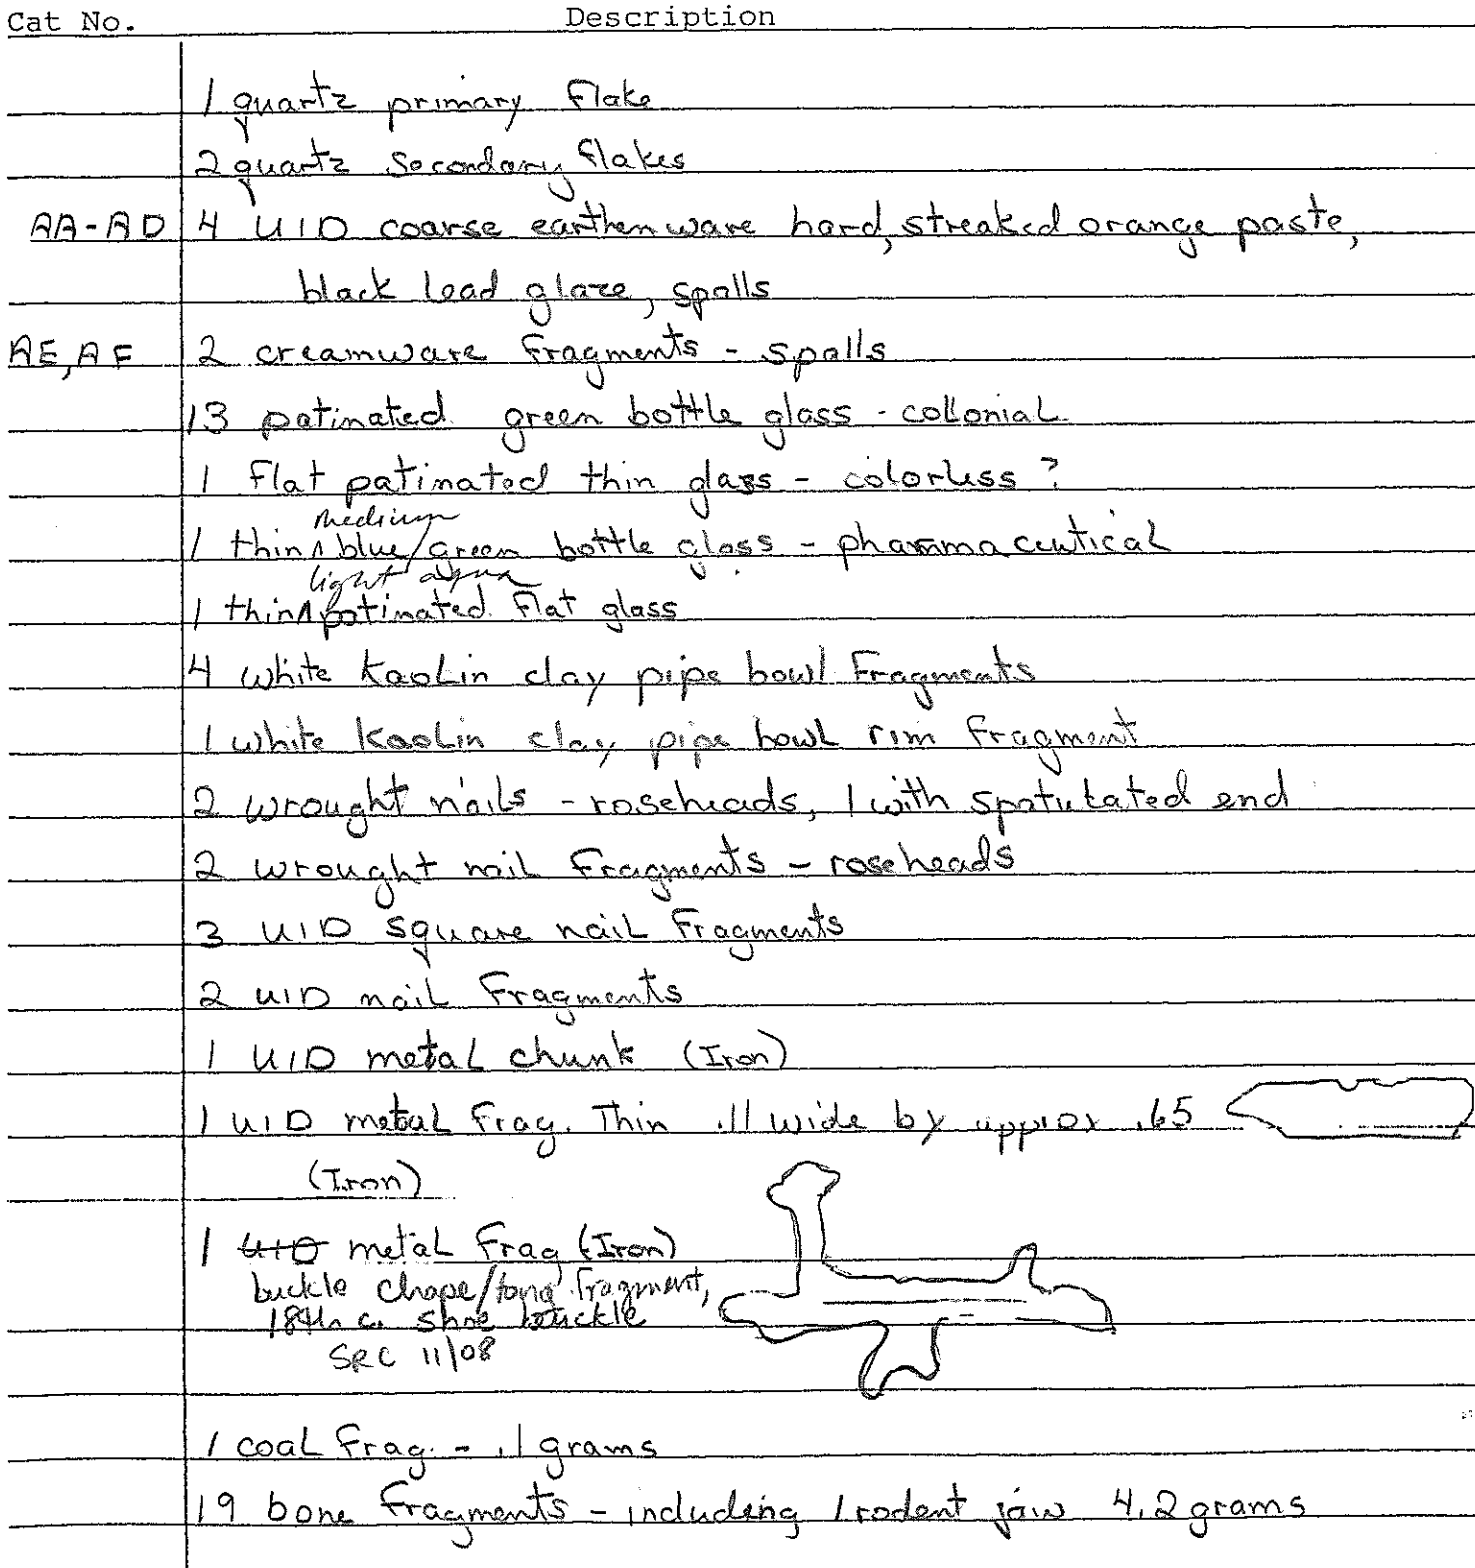 Cat No. Description
1 quartz primary flake
2 quartz secondary flakes
AA-AD 4 UID coarse earthenware hard, streaked orange paste,
black lead glaze, spalls
AE, AF 2 creamware fragments - spalls
13 patinated green bottle glass - collonial
1 flat patinated thin glass - colorless ?
medium
1 thin ^ blue/green bottle glass - pharmmaceutical
light aqua
1 thin ^ patinated flat glass
4 white kaolin clay pipe bowl fragments
1 white kaolin clay pipe bowl rim fragment
2 wrought nails - roseheads, 1 with spatulated end
2 wrought nail fragments - roseheads
3 UID square nail fragments
2 UID nail fragments
1 UID metal chunk (Iron)
1 UID metal frag. Thin .11 wide by approx .65
(Iron)
1 UID metal frag (Iron)
buckle chape/tong fragment,
18th c. shoe buckle
SRC 11/08
1 coal frag. - .1 grams
19 bone fragments - including 1 rodent jaw 4.2 grams